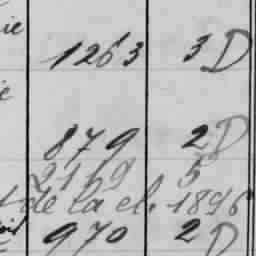 ie 1263 3 D
e
879 2 D
2169 5
de la cl. 1896
970 2 D